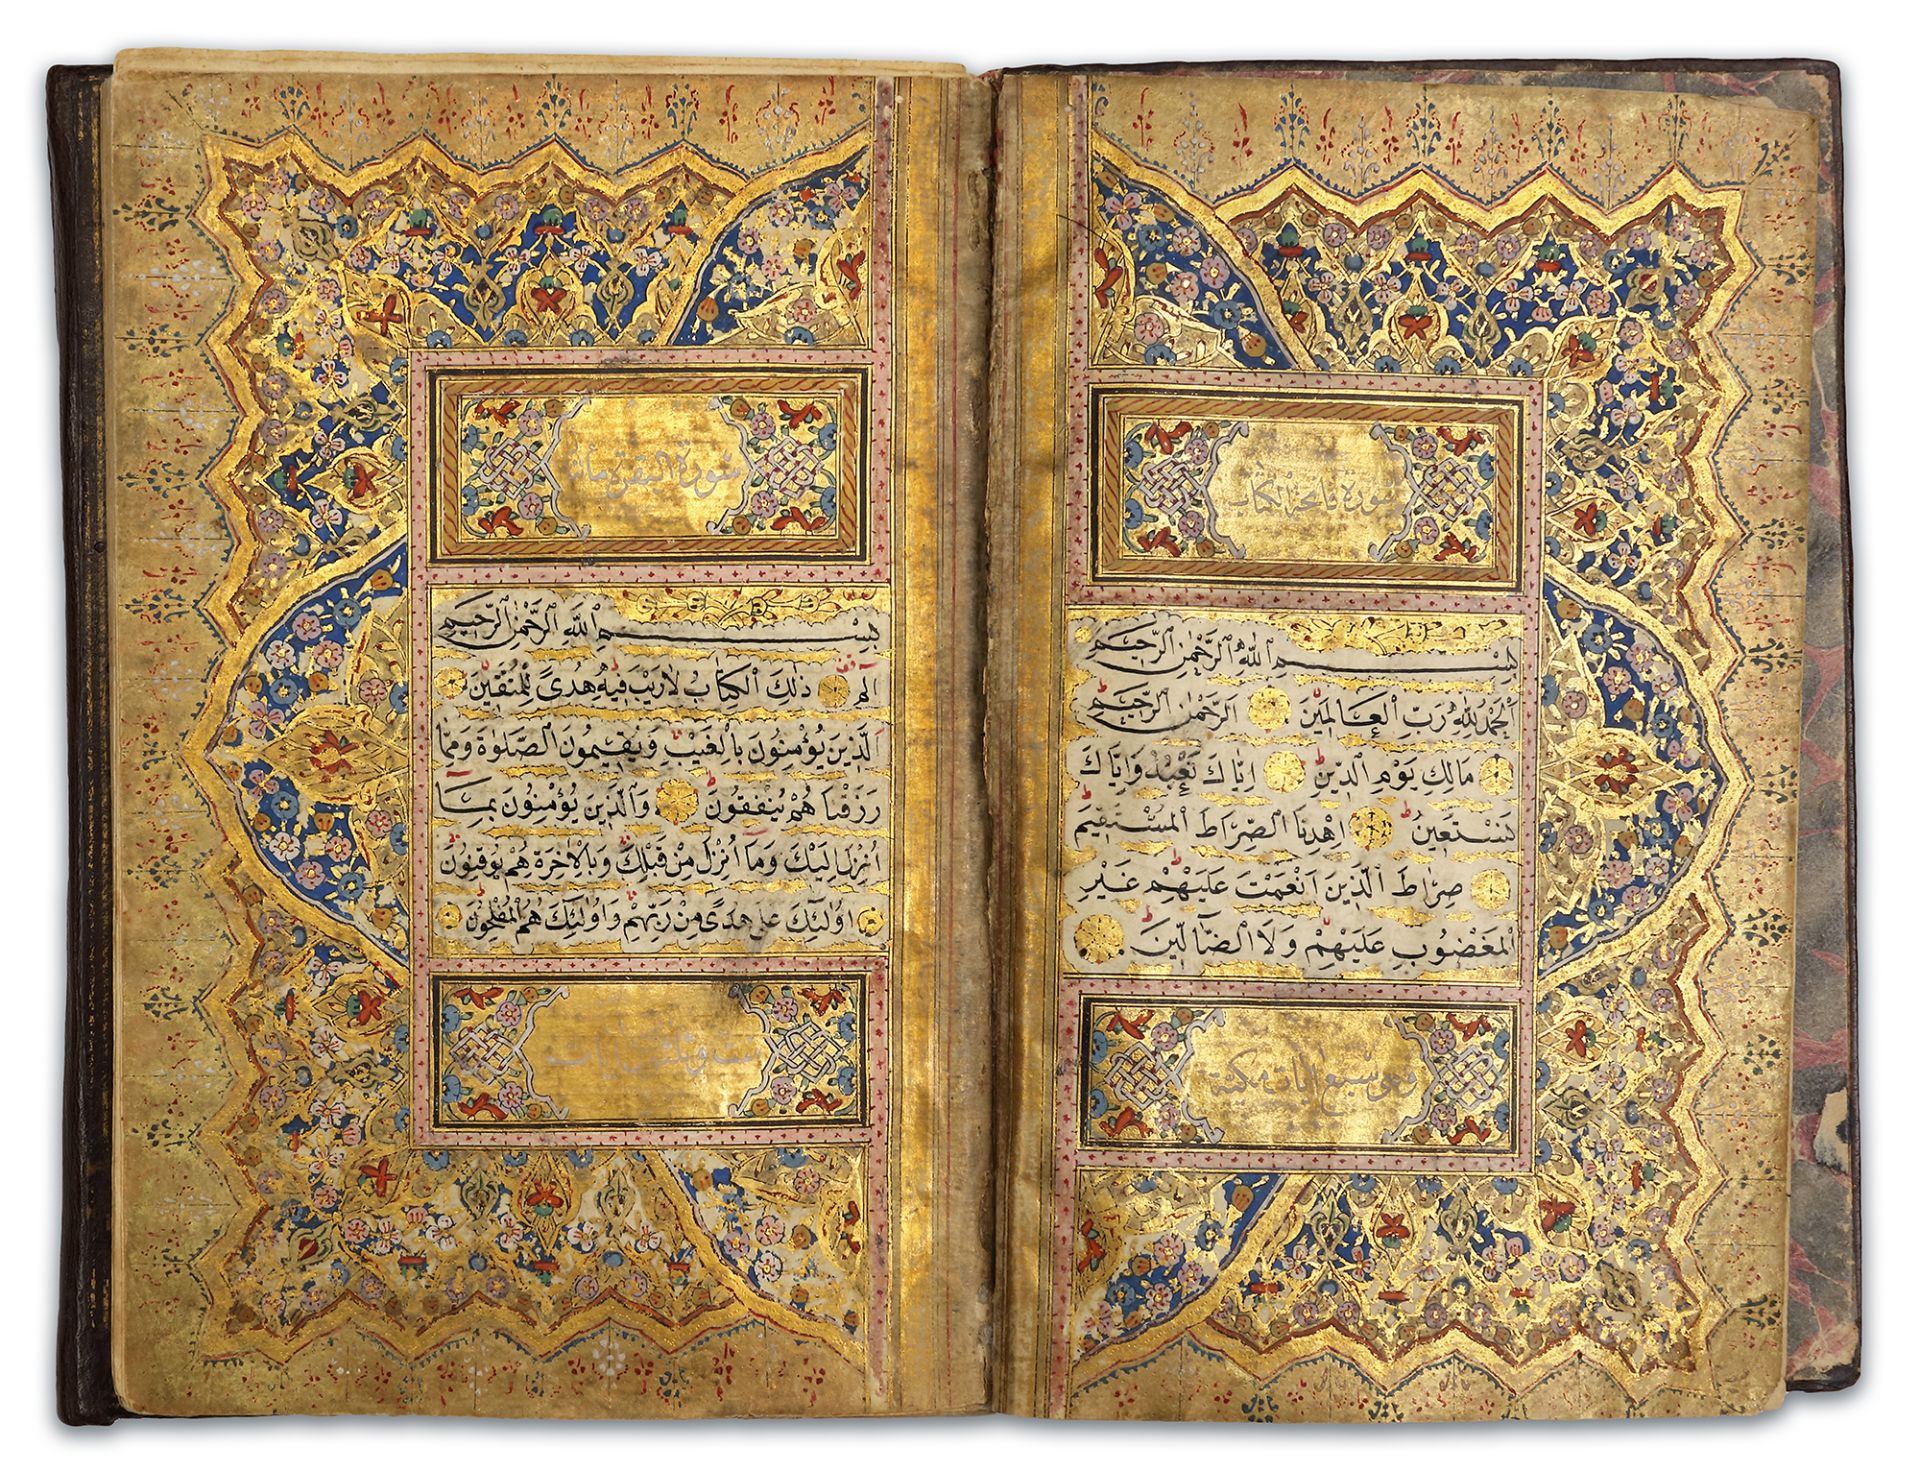 سورة فاتحة الكتاب
بِسْمِ اللّٰهِ الرَّحْمٰنِ الرَّحِيمِ
اَلْحَمْدُ لِلّٰهِ رَبِّ الْعَالَمِينَ الرَّحْمٰنِ الرَّحِيمِ
مَالِكِ يَوْمِ الدِّينِ اِيَّاكَ نَعْبُدُ وَاِيَّاكَ
نَسْتَعِينُ اِهْدِنَا الصِّرَاطَ الْمُسْتَقِيمَ
صِرَاطَ الَّذِينَ اَنْعَمْتَ عَلَيْهِمْ غَيْرِ
الْمَغْضُوبِ عَلَيْهِمْ وَلَا الضَّالِّينَ
وهي سبع ايات مكية
سورة البقرة مائتا
بِسْمِ اللّٰهِ الرَّحْمٰنِ الرَّحِيمِ
الم ذٰلِكَ الْكِتَابُ لَا رَيْبَ فِيهِ هُدًى لِلْمُتَّقِينَ
اَلَّذِينَ يُؤْمِنُونَ بِالْغَيْبِ وَيُقِيمُونَ الصَّلٰوةَ وَمِمَّا
رَزَقْنَاهُمْ يُنْفِقُونَ وَالَّذِينَ يُؤْمِنُونَ بِمَا
اُنْزِلَ اِلَيْكَ وَمَا اُنْزِلَ مِنْ قَبْلِكَ وَبِالْاٰخِرَةِ هُمْ يُوقِنُونَ
اُولٰئِكَ عَلٰى هُدًى مِنْ رَبِّهِمْ وَاُولٰئِكَ هُمُ الْمُفْلِحُونَ
ايات